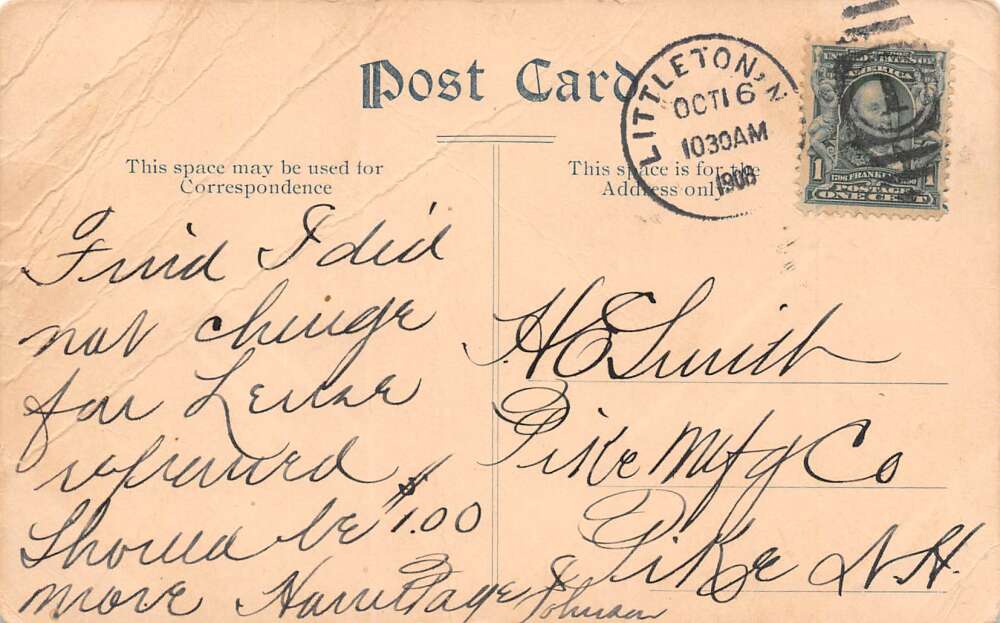 Post Card
LITTLETON, N
OCT 16
1030AM
1908
UNITED STATES OF
AMERICA
1 1
FRANKLIN
POSTAGE
ONE CENT
This space may be used for
Correspondence
This space is for the
Address only
Find I did
not charge
for Lense
should be $1.00
more & Johnson
H E Smith
Pike Mfg Co
Pike N.H.